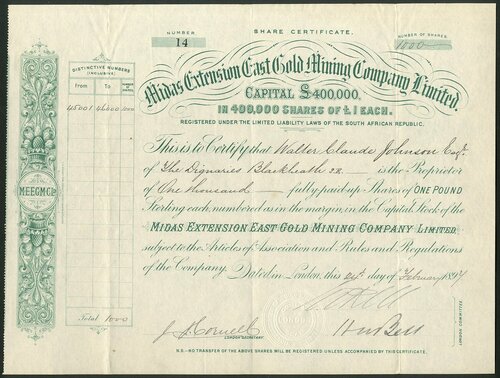 NUMBER
14
SHARE CERTIFICATE.
NUMBER OF SHARES
1000
Midas Extension East Gold Mining Company Limited.
CAPITAL £400,000,
IN 400,000 SHARES OF £1 EACH.
REGISTERED UNDER THE LIMITED LIABILITY LAWS OF THE SOUTH AFRICAN REPUBLIC.
DISTINCTIVE NUMBERS
(INCLUSIVE)
From To
45001 46000 1000
MEEGMCo.
Total 1000
This is to Certify that Walter Claude Johnson Esq.
of The Blackheath S.E. is the Proprietor
of One thousand fully paid up Shares of ONE POUND
Sterling each, numbered as in the margin, in the Capital Stock of the
MIDAS EXTENSION EAST GOLD MINING COMPANY LIMITED
subject to the Articles of Association and Rules and Regulations
of the Company. Dated in London, this day of February 18
LONDON SECRETARY.
LONDON COMMITTEE.
N.B.-NO TRANSFER OF THE ABOVE SHARES WILL BE REGISTERED UNLESS ACCOMPANIED BY THIS CERTIFICATE.